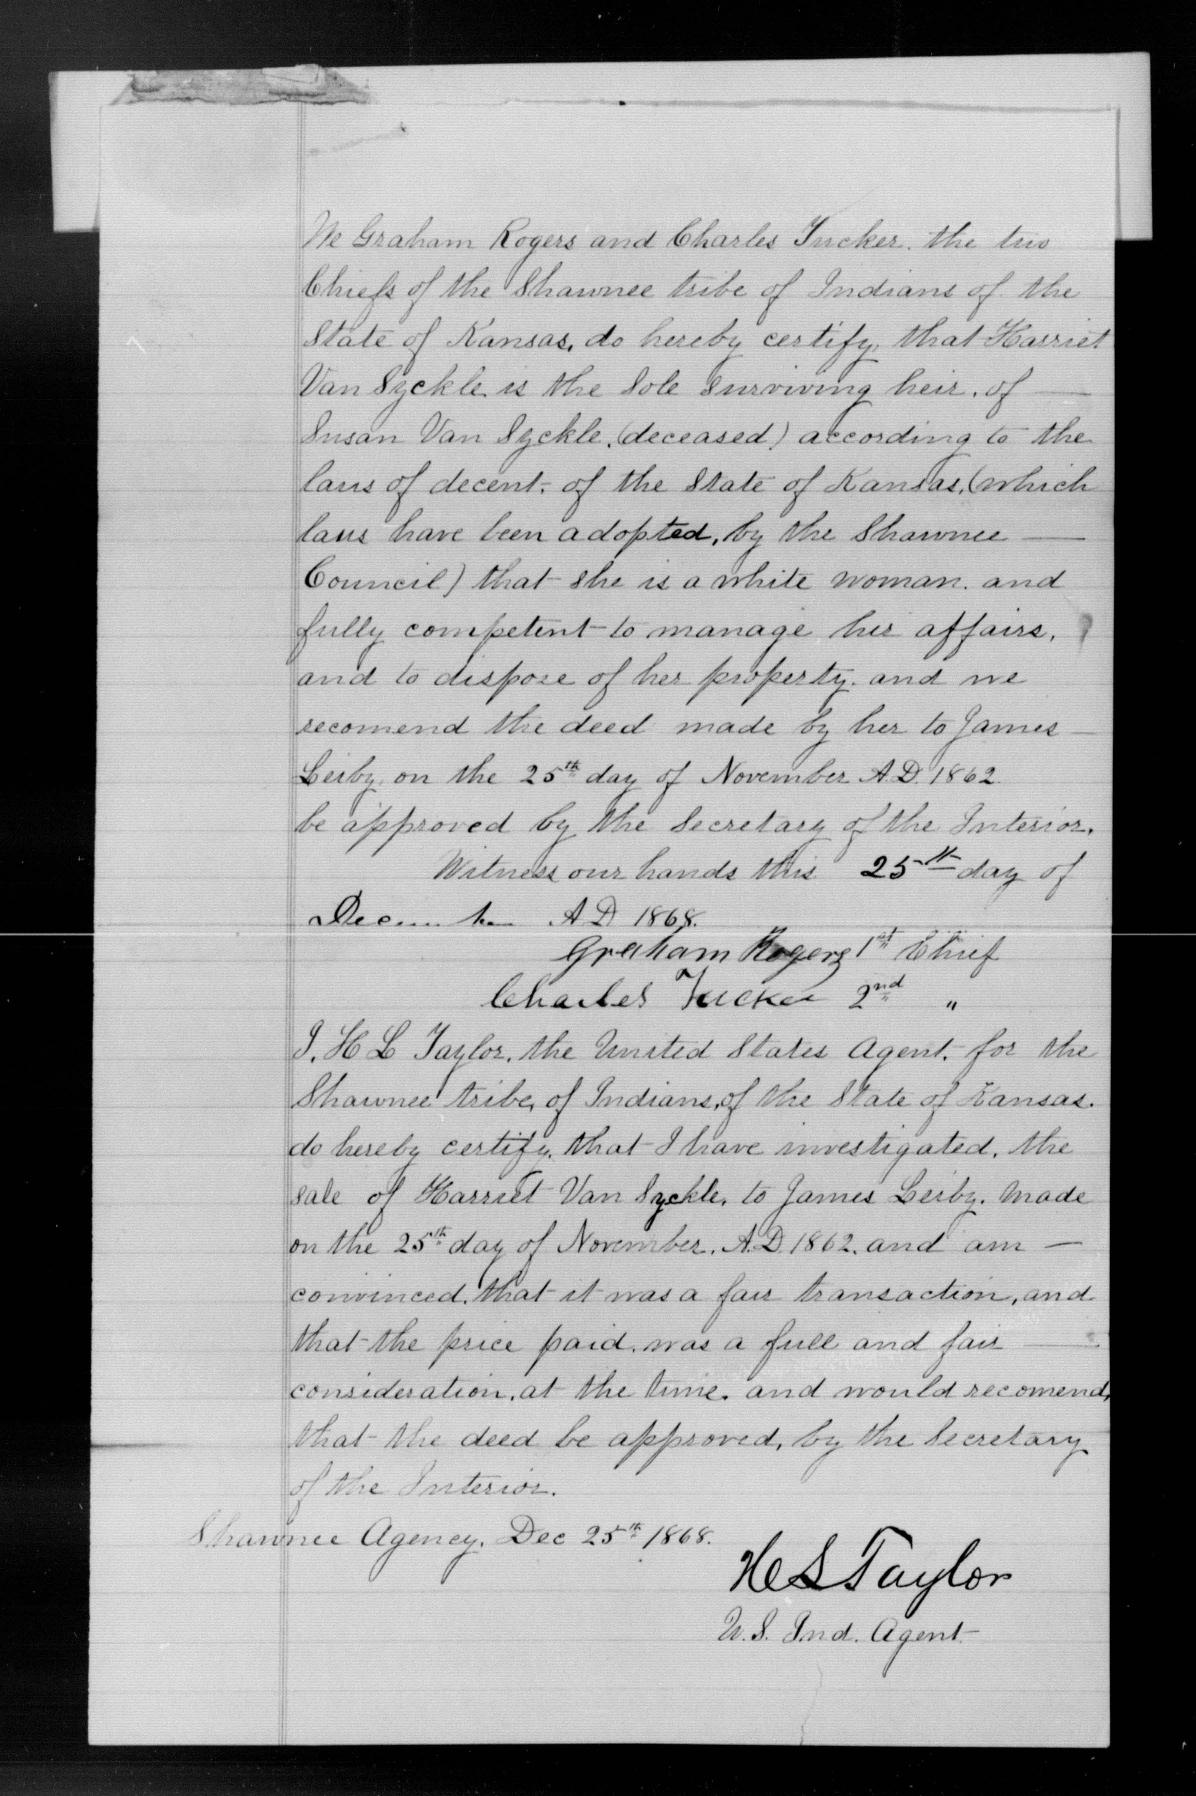 We Graham Rogers and Charles Tucker. the two
Chiefs of the Shawnee tribe of Indians of the
State of Kansas, do hereby certify, that Harriet
Van Syckle is the Sole Surviving heir. of —
Susan Van Syckle, (deceased) according to the
laws of decent, of the State of Kansas, (which
laws have been adopted, by the Shawnee —
Council) that she is a white woman. and
fully competent to manage her affairs,
and to dispose of her property. and we
recomend the deed made by her to James —
Leiby, on the 25th day of November A.D. 1862
be approved by the Secretary of the Interior.
Witness our hands this 25th day of
December A D 1868.
Graham Rogers 1st Chief
Charles Tucker 2nd "
I, H L Taylor, the United States Agent, for the
Shawnee tribe, of Indians, of the State of Kansas.
do hereby certify, that I have investigated, the
sale of Harriet Van Syckle, to James Leiby. made
on the 25th day of November, A.D. 1862. and am —
convinced, that it was a fair transaction, and
that the price paid. was a full and fair —
consideration, at the time. and would recomend,
that the deed be approved, by the Secretary
of the Interior.
Shawnee Agency, Dec 25th 1868.
H L Taylor
U.S. Ind. Agent